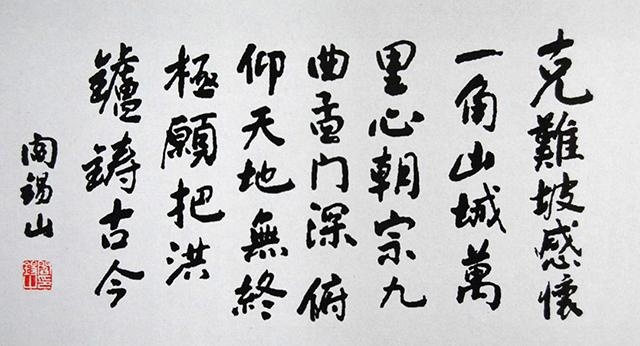 克難坡感懷
一角山城萬
里心朝宗九
曲孟门深俯
仰天地無終
極願把洪
鑪鑄古今
阎錫山